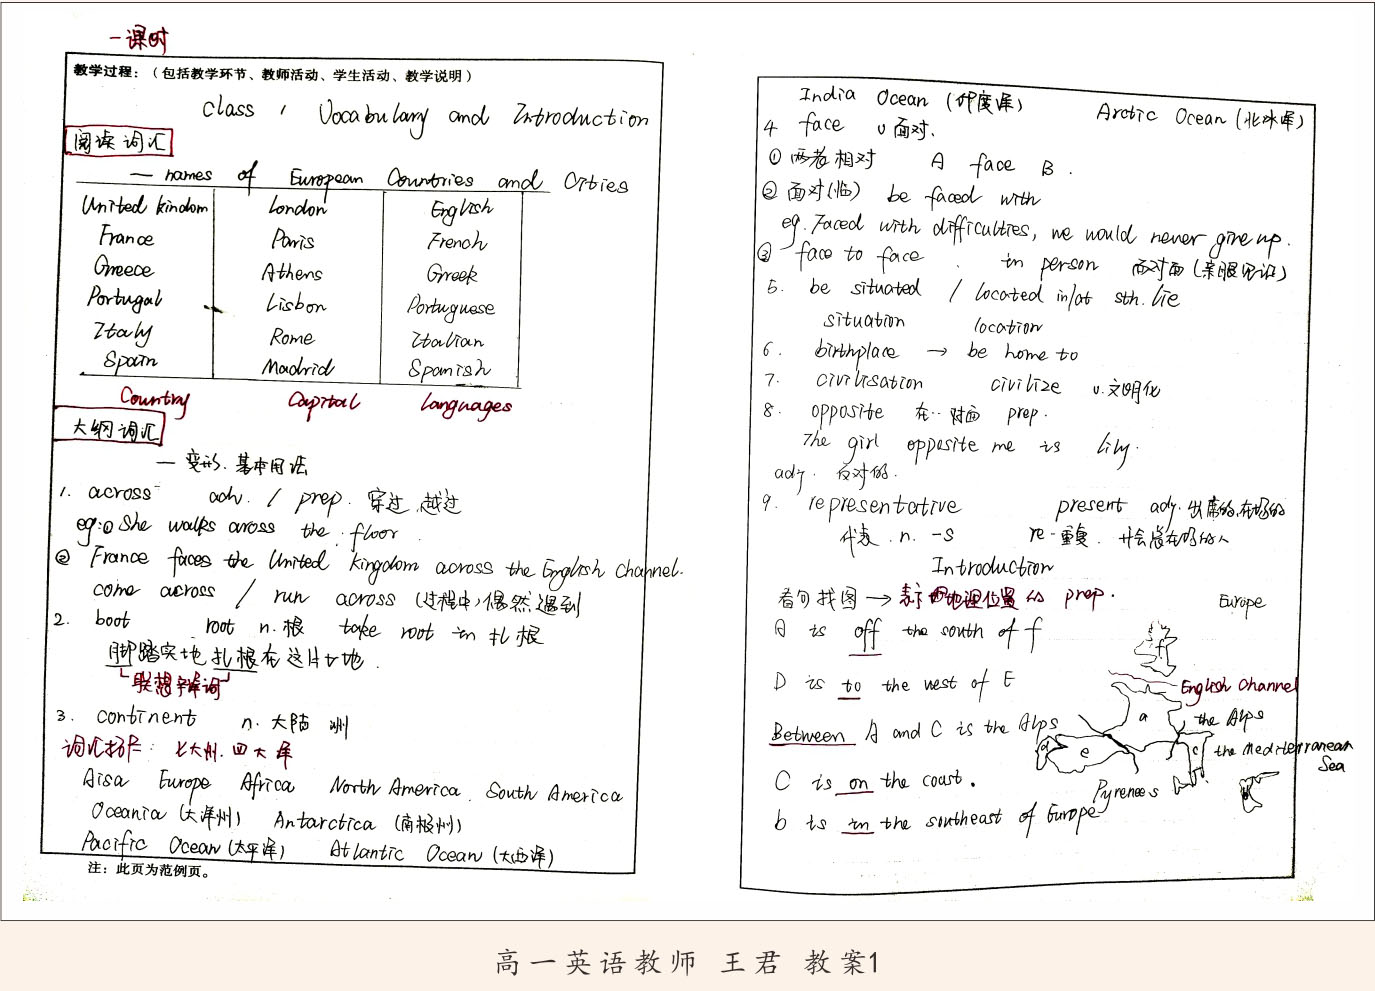 一课时
教学过程：（包括教学环节、教师活动、学生活动、教学说明）
Class 1 Vocabulary and Introduction
阅读词汇
— names of European Countries and Cities
United kindom London English
France Paris French
Greece Athens Greek
Portugal Lisbon Portuguese
Italy Rome Italian
Spain Madrid Spanish
Country Capital languages
大纲词汇
— 变形、基本用法
1. across adv. / prep. 穿过 越过
eg:① She walks across the floor.
② France faces the United Kingdom across the English Channel.
come across / run across (过程中)偶然遇到
2. boot root n. 根 take root in 扎根
脚踏实地 扎根在这片土地.
联想辨词
3. continent n. 大陆 洲
词汇扩广: 七大州. 四大洋
Aisa Europe Africa North America. South America
Oceania (大洋州) Antarctica (南极州)
Pacific Ocean (太平洋) Atlantic Ocean (大西洋)
注：此页为范例页。
India Ocean (印度洋) Arctic Ocean (北冰洋)
4 face v 面对.
① 两者相对 A face B.
② 面对(临) be faced with
eg. Faced with difficulties, we would never give up.
③ face to face. in person 面对面(亲眼见识)
5. be situated / located in/at sth. lie
situation location
6. birthplace → be home to
7. civilisation civilize v. 文明化
8. opposite 在··对面 prep.
The girl opposite me is lily.
adj. 反对的.
9. representative present adj. 出席的,在场的
代表. n. -s re-重复.
Introduction
看句找图 → 表示地理位置的 prep.
Europe
A is off the south of f
D is to the west of E
English Channel
Between A and C is the Alps
a
the Alps
d
e
c
the Mediterranean Sea
C is on the coast.
Pyrenees
b is in the southeast of Europe
高一英语教师 王君 教案1